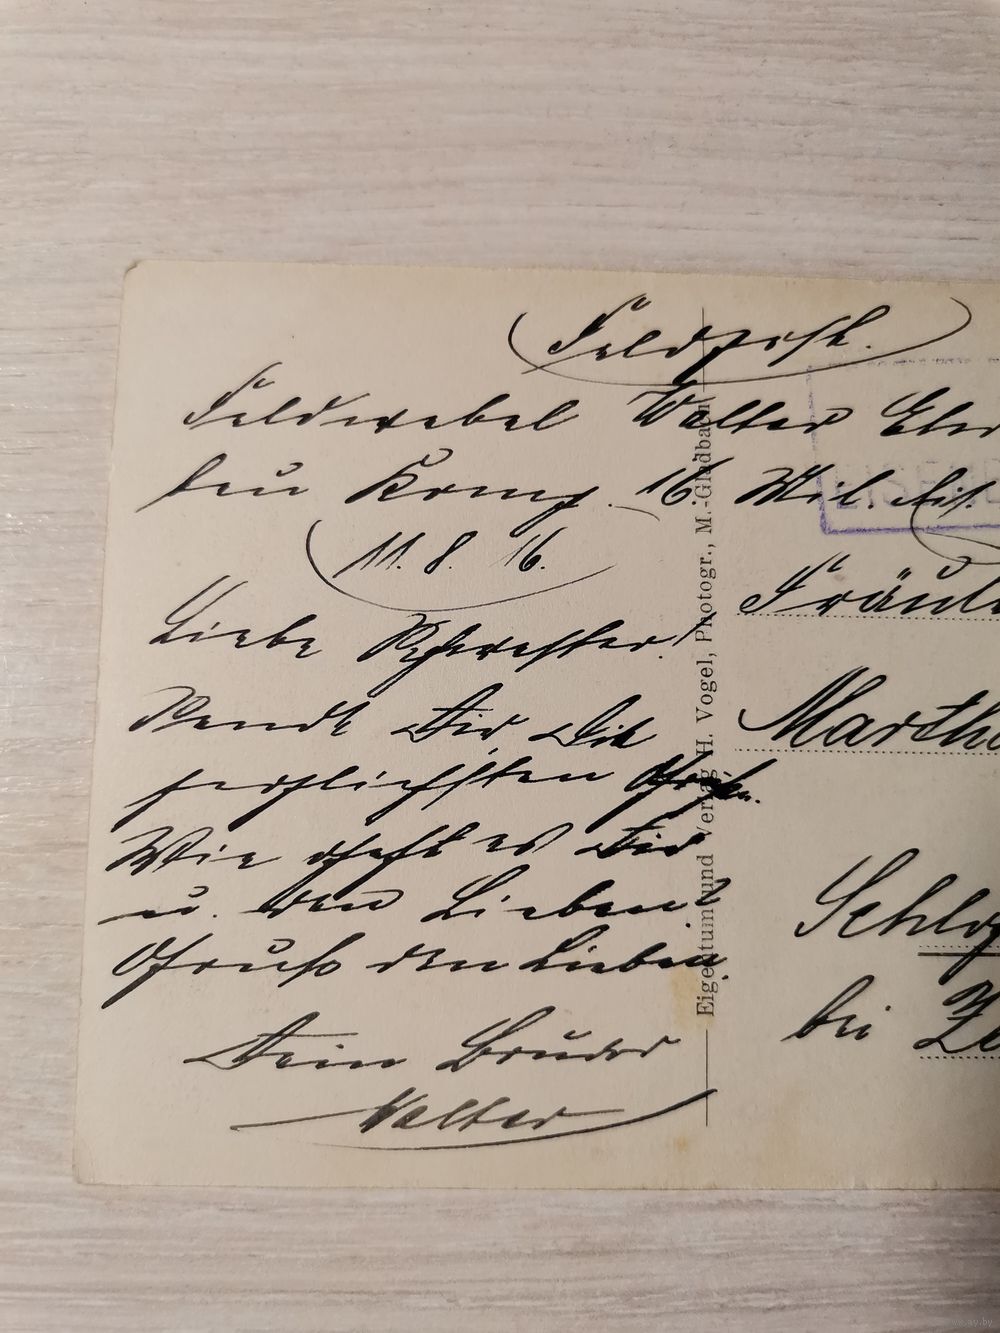 Feldpost.
Feldwebel Walter Eber
bau Komp. 16 Mil. Eis.
11. 8. 16.
Liebe Schwester!
Sendet Dir die
herzlichsten Grüße.
Wie geht es Dir
u. den Lieben?
Gruß den Lieben
Dein Bruder
Walter
Eigentum und Verlag H. Vogel, Photogr., M.-Gladbach
EISEN
Fräul
Martha
Schloß
bei
www.ay.by